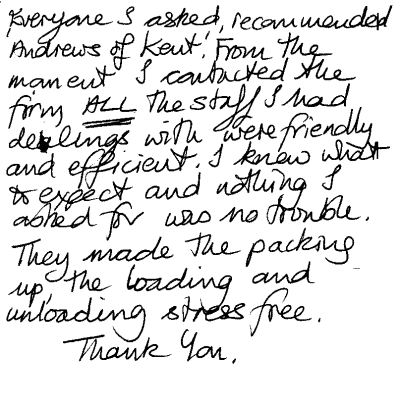 'Everyone I asked, recommended
Andrews of Kent'. From the
moment I contacted the
firm, ALL the staff I had
dealings with were friendly
and efficient. I knew what
to expect and nothing I
asked for was no trouble.
They made the packing
up, the loading and
unloading stress free.
Thank You.